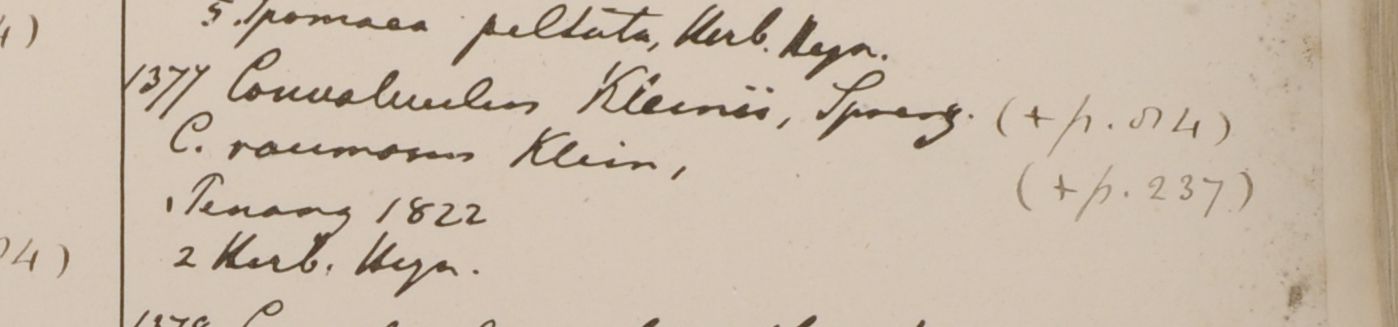 4)
5. Ipomaea peltata, Herb. Heyn.
1377 Convolvulus Kleinii, Spreng. (+ p. 514)
C. racemosus Klein, (+ p. 237)
1 Penang 1822
2 Herb. Heyn.
24)
1378